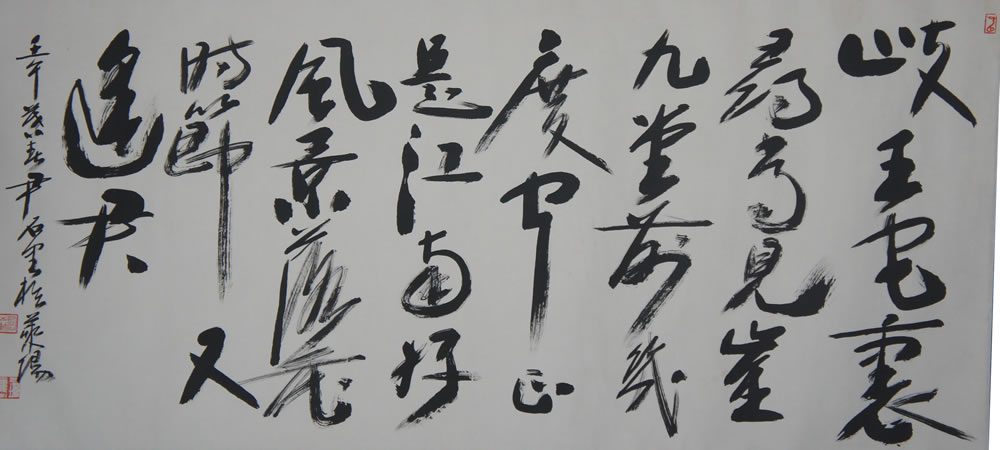 岐王宅裏
尋常見崔
九堂前幾
度聞正
是江南好
風景落花
時節又
逢君
壬午暮春尹石於陽